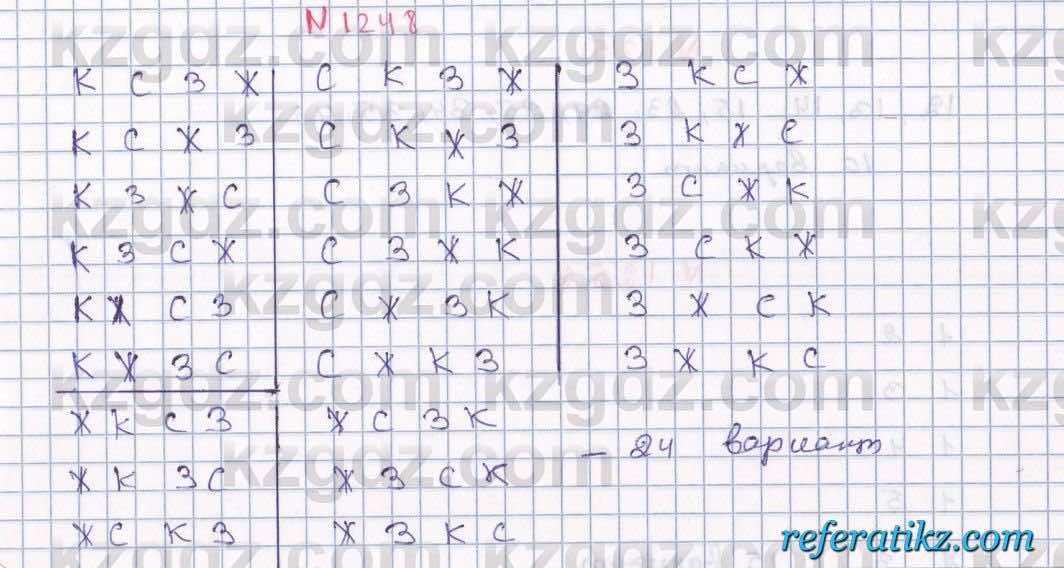 N 1248
К С З Ж С К З Ж З К С Ж
К С Ж З С К Ж З З К Ж С
К З Ж С С З К Ж З С Ж К
К З С Ж С З Ж К З С К Ж
К Ж С З С Ж З К З Ж С К
К Ж З С С Ж К З З Ж К С
Ж К С З Ж С З К
– 24 вариант
Ж К З С Ж З С К
Ж С К З Ж З К С
kzgdz.com
referatikz.com